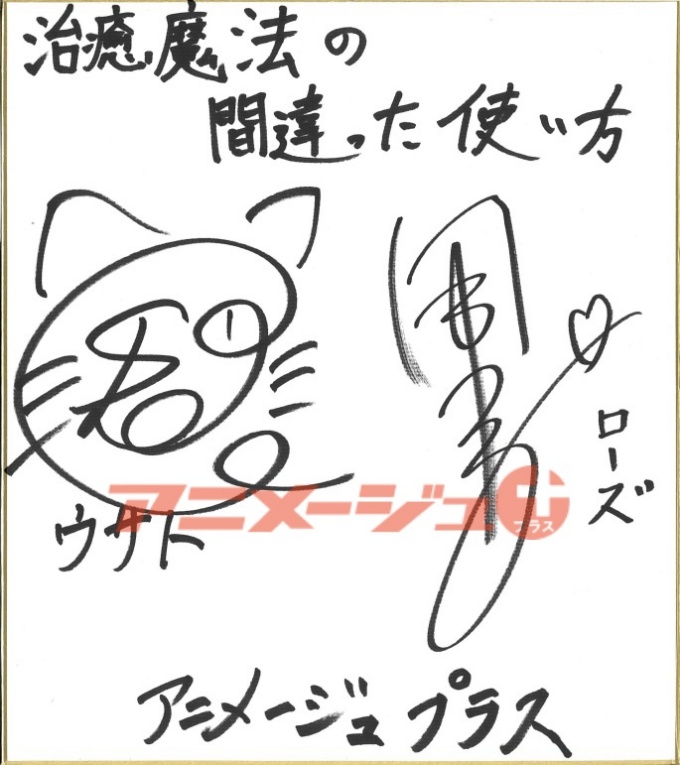 治癒魔法の
間違った使い方
ウサト
ローズ
アニメージュプラス
アニメージュ プラス